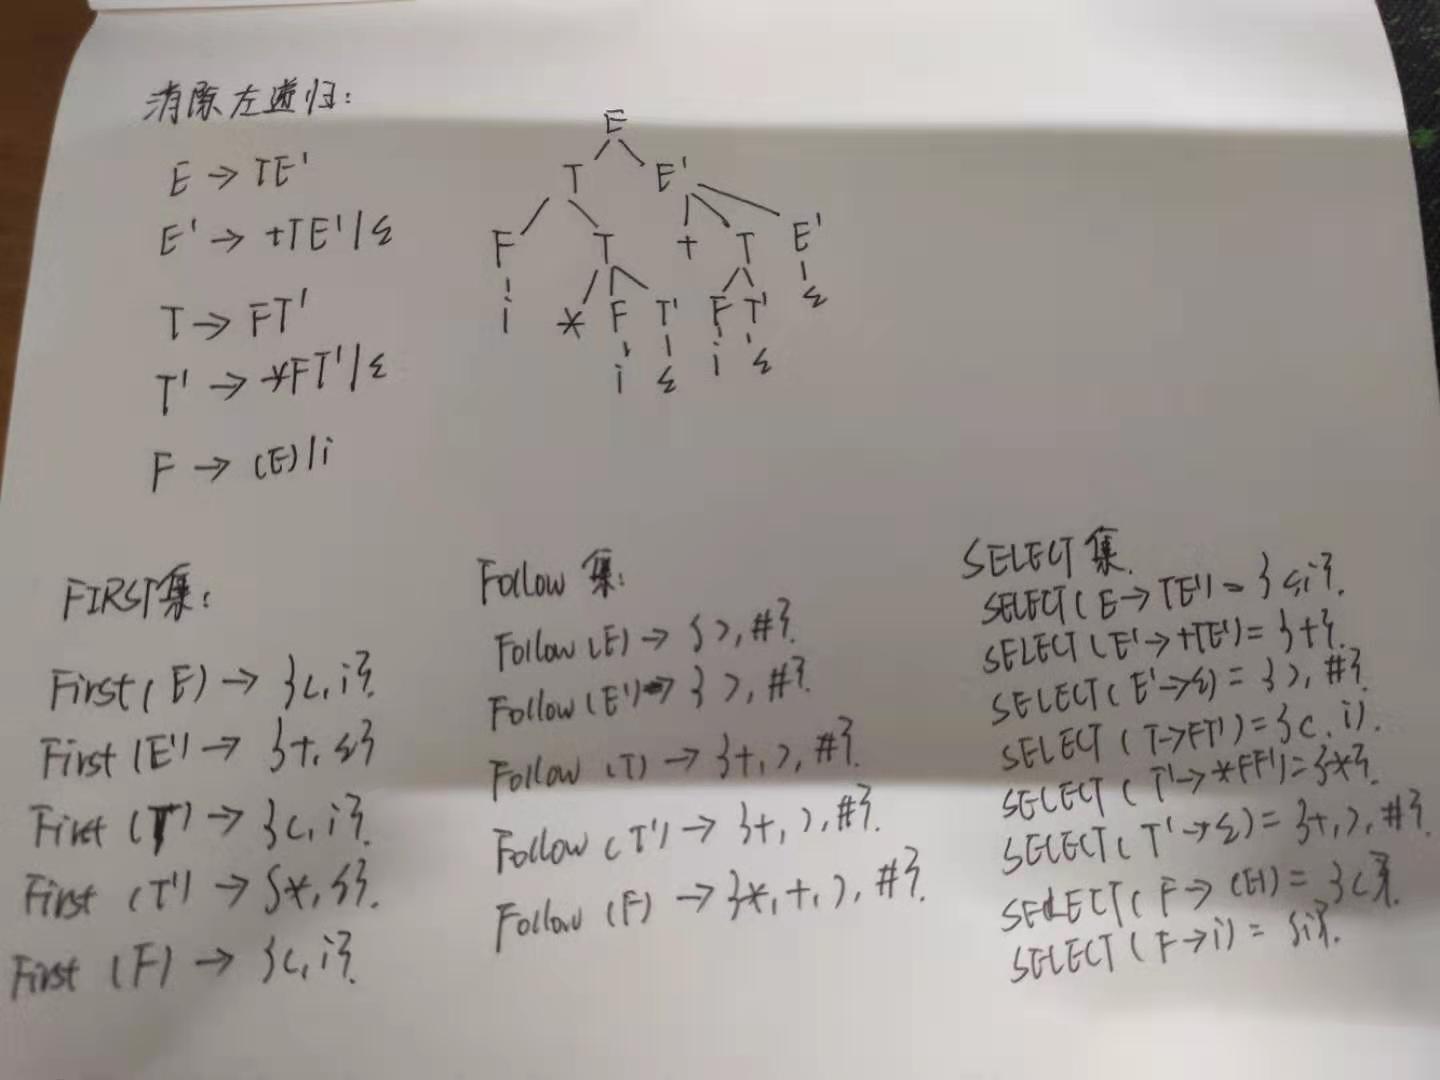 消除左递归:
E → TE'
E' → +TE'|ε
T → FT'
T' → *FT'|ε
F → (E)|i
E
T E'
F T + T E'
i * F T' F T' ε
i ε i ε
FIRST集:
First(E) → {(, i}.
First(E') → {+, ε}
First(T) → {(, i}.
First(T') → {*, ε}.
First(F) → {(, i}.
Follow集:
Follow(E) → {), #}.
Follow(E') → {), #}.
Follow(T) → {+, ), #}.
Follow(T') → {+, ), #}.
Follow(F) → {*, +, ), #}.
SELECT集.
SELECT(E→TE') = {(, i}.
SELECT(E'→+TE') = {+}.
SELECT(E'→ε) = {), #}.
SELECT(T→FT') = {(, i).
SELECT(T'→*FF') = {*}.
SELECT(T'→ε) = {+, ), #}.
SELECT(F→(E)) = {(}.
SELECT(F→i) = {i}.